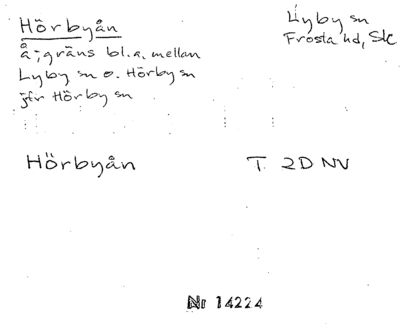 Hörbyån
Lyby sn
Frosta hd, Sk
å; gräns bl.a. mellan
Lyby sn o. Hörby sn
jfr Hörby sn
Hörbyån T. 2D NV
Nr 14224